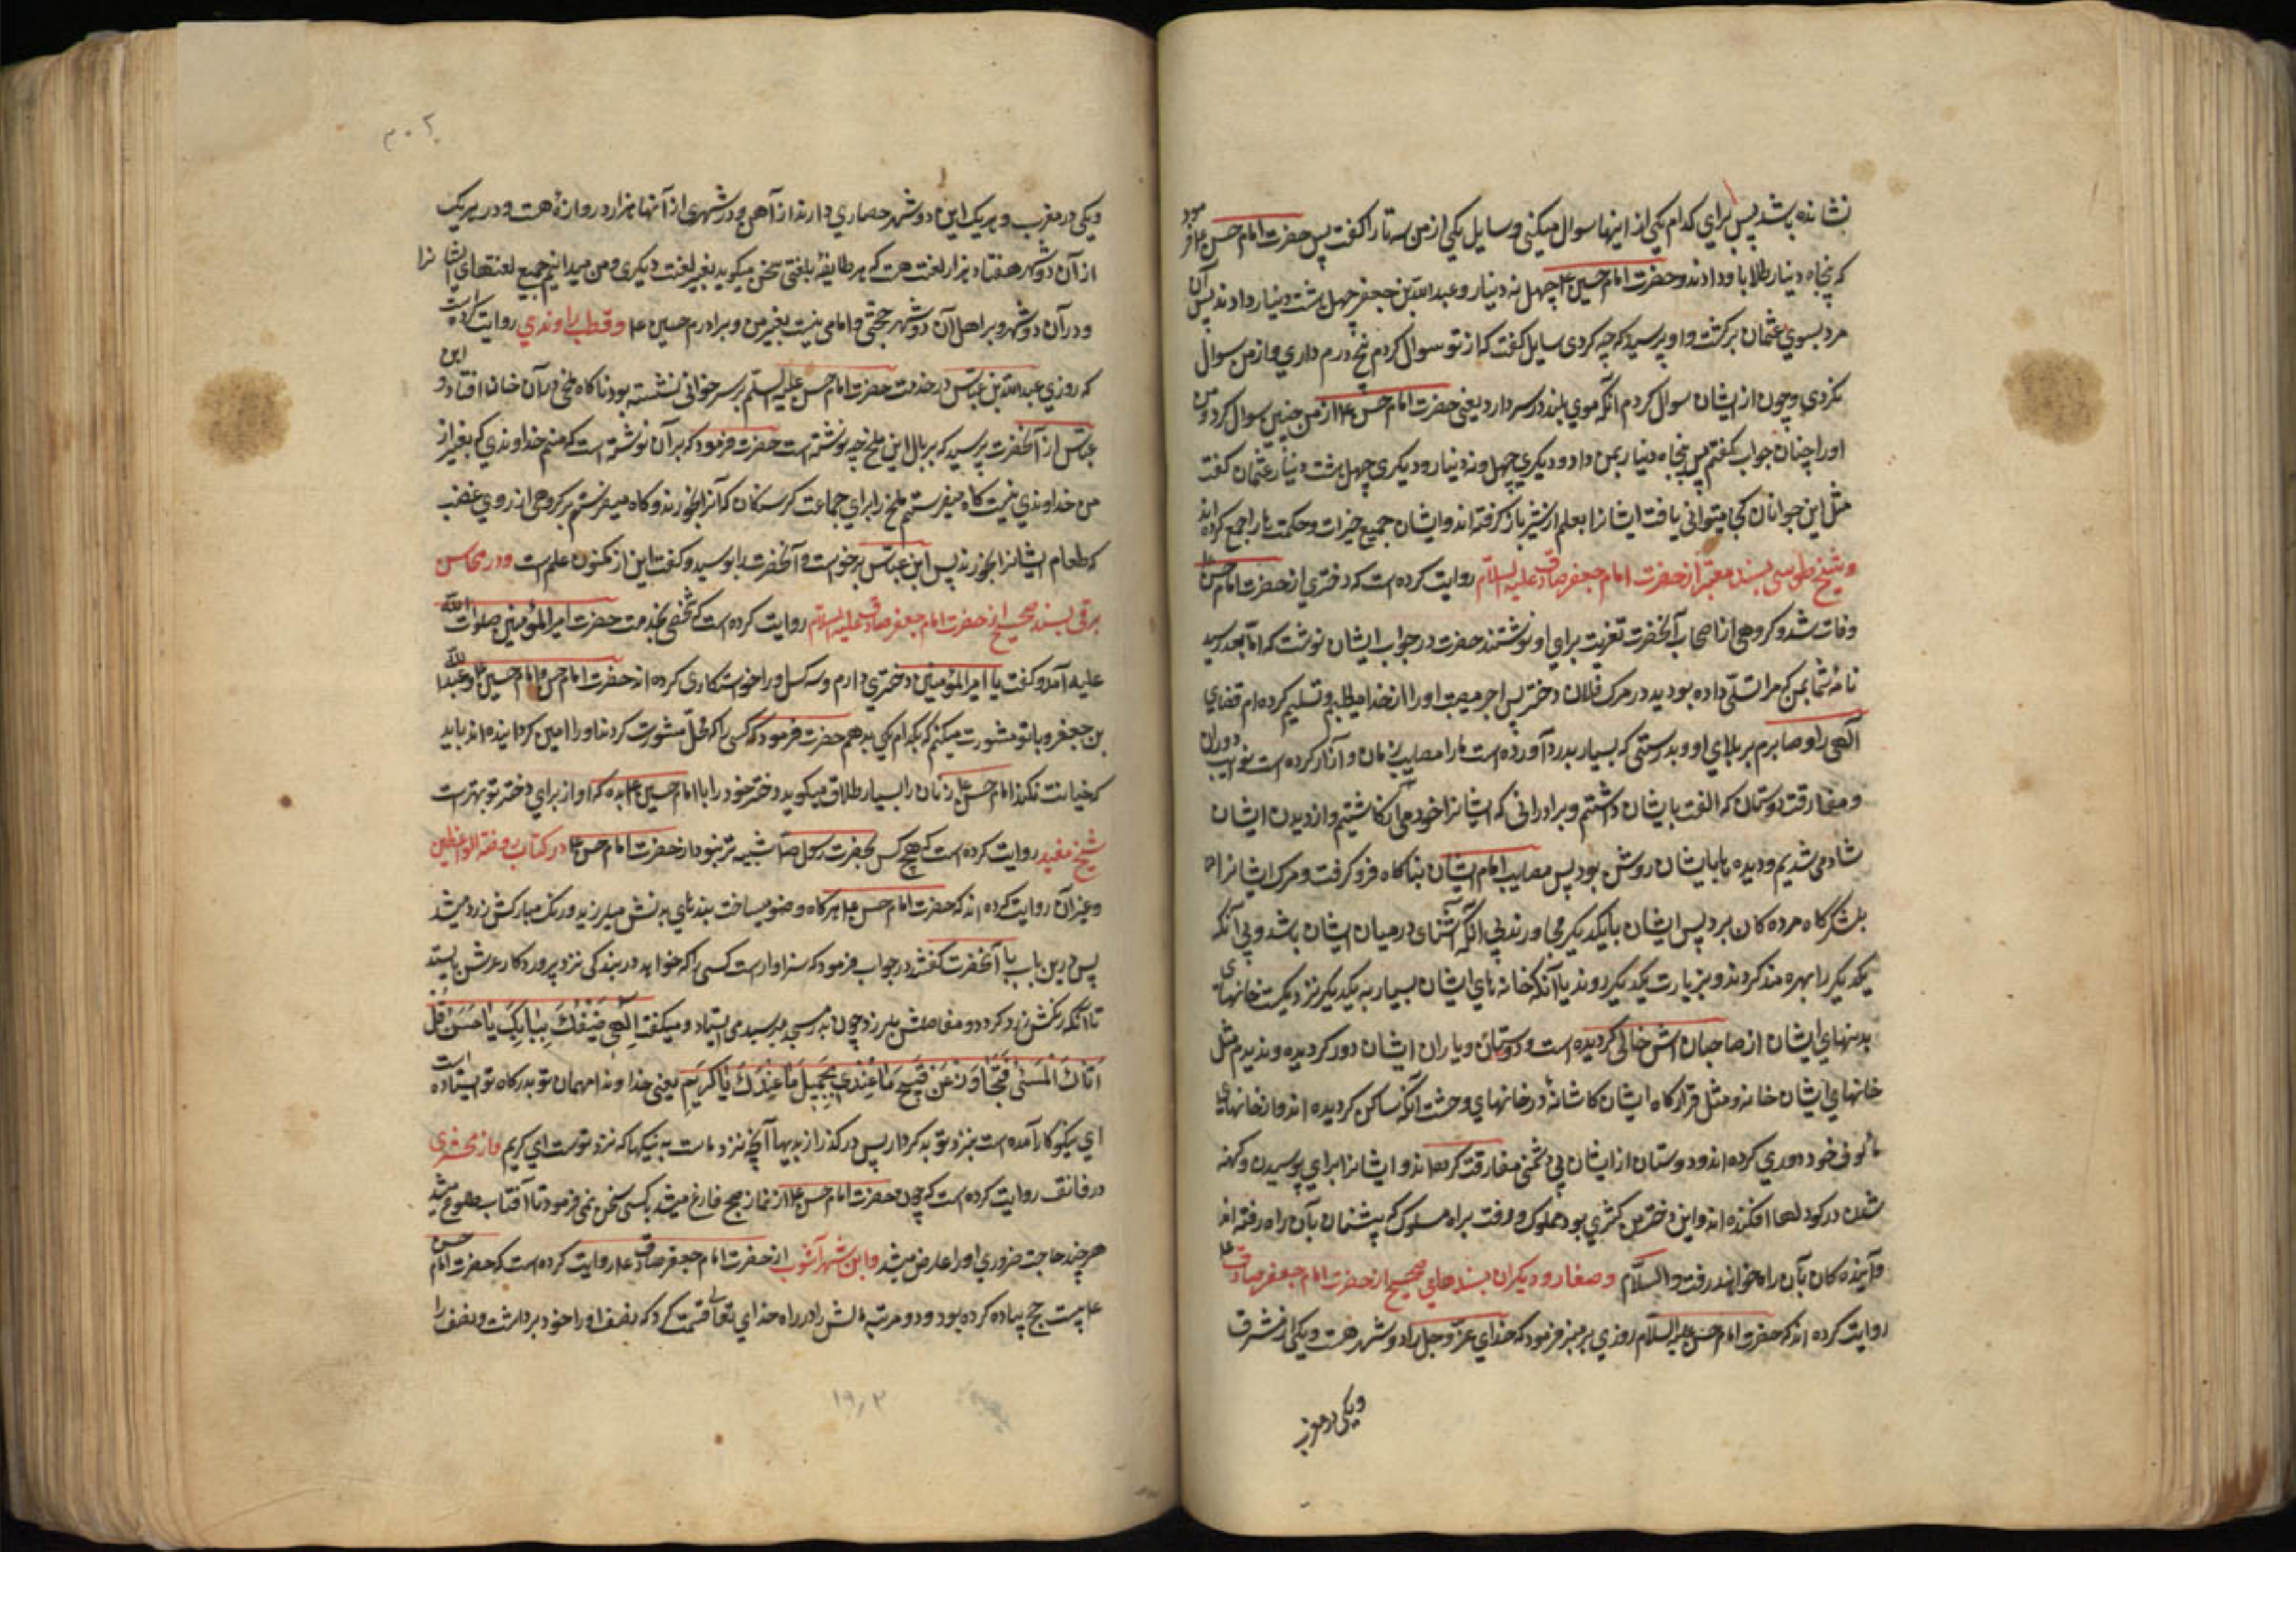 نشانده باشد پس برای کدام یکی از اینها سوال میکنی و سایل یکی از من ستا را گفت پس حضرت امام حسن ع فرمود
که پنجاه دینار طلا باو دادند و حضرت امام حسین ع چهل نه دینار و عبد الله بن جعفر چهل هشت دینار دادند پس آن
مرد بسوی عثمان برگشت و او پرسید که چه کردی سایل گفت که از تو سوال کردم پنج درم داری و از من سوال
نکردی و چون از ایشان سوال کردم آنکه موی بلند در سر دارد یعنی حضرت امام حسن ع از من چنین سوال کرد و من
او را چنان جواب گفتم پس پنجاه دینار بمن داد و دیگری چهل و نه دینار و دیگری چهل هشت دینار عثمان گفت
مثل این جوانان کجا میتوانی یافت ایشانرا بعلم از شیر باز گرفته اند و ایشان جمیع خیرات و حکمت ها را جمع کرده اند
و شیخ طوسی بسند معتبر از حضرت امام جعفر صادق علیه السلام روایت کرده است که دختری از حضرت امام حسن ع
وفات شد و گروهی از اصحاب آنحضرت تعزیت برای او نوشتند حضرت در جواب ایشان نوشت که اما بعد رسید
نامه شما بمن که مرا تسلی داده بودید در مرک فلان دختر پس اجر مصیبت او را از خدا میطلبم و تسلیم کرده ام قضای
الهی را و صابرم بر بلای او و بدرستی که بسیار بدرد آورده است ما را مصایب زمان و آزار کرده است نوایب دوران
و مفارقت دوستان که الفت با ایشان داشتیم و برادرانی که ایشانرا از خود می انکاشتیم و از دیدن ایشان
شاد می شدیم و دیده ما بایشان روشن بود پس مصایب ایام ایشان بناکاه فرو گرفت و مرک ایشانرا
بلشکرگاه مرده کان برد پس ایشان با یکدیگر مجاورند بی آنکه آشنائی در میان ایشان باشد و بی آنکه
یکدیگر را بهره مند کردند و بزیارت یکدیگر روند با آنکه خانه های ایشان بسیار به یکدیگر نزدیکست خانهای
بدنهای ایشان از صاحبان اش خالی گردیده است و دوستان و یاران ایشان دور گردیده و ندیدم مثل
خانهای ایشان خانه و مثل قرارگاه ایشان کاشانه در خانهای وحشت آنکه ساکن گردیده اند و از خانهای
مالوف خود دوری کرده اند و دوستان از ایشان بی دشمنی مفارقت کرده اند و ایشانرا برای پوسیدن و کهنه
شدن در کودالها افکنده اند و این دختر من کنیزی بود مملوک و رفت براه مسلوک که پیشینان بآن راه رفته اند
و آینده کان بآن راه خواهند رفت والسلام و صفار و دیگران بسندهای صحیح از حضرت امام جعفر صادق ع
روایت کرده اند که حضرت امام حسن علیه السلام روزی بر منبر فرمود که خدای عز و جل را دو شهر هست و یکی از مشرق
ویکی در مغرب
۲۰۳
ویکی در مغرب و هر یک این دو شهر حصاری دارند از آهن و در شهری از آنها هزار دروازه هست و در هر یک
از آن دو شهر هفتاد هزار لغت هست که هر طایفه بلغتی سخن میکوید بغیر لغت دیگری و من میدانم جمیع لغتهای ایشانرا
و در آن دو شهر و بر اهل آن دو شهر حجتی و امامی نیست بغیر من و برادرم حسین ع و قطب راوندی روایت کرده است
که روزی عبد الله بن عباس در خدمت حضرت امام حسن علیه السلم بر سر خوانی نشسته بود ناکاه ملخی در آن خوان افتاد و ابن
عباس از آنحضرت پرسید که بر بال این ملخ چه نوشته است حضرت فرمود که بر آن نوشته است که منم خداوندی که بغیر از
من خداوندی نیست کاه میفرستم ملخ را برای جماعت گرسنگان که آنرا بخورند و کاه میفرستم بر گروهی از روی غضب
که طعام ایشانرا بخورند پس ابن عباس برخواست و آنحضرت را بوسید و گفت این از مکنون علم است و در محاسن
برقی بسند صحیح از حضرت امام جعفر صادق علیه السلام روایت کرده است که شخصی بخدمت حضرت امیر المؤمنین صلوات الله
علیه آمد و گفت یا امیر المؤمنین دختری دارم و سه کس او را خواستگاری کرده اند حضرت امام حسن و امام حسین ع و عبد الله
بن جعفر و با تو مشورت میکنم که بکدام یکی بدهم حضرت فرمود که کسی را که محل مشورت کردند او را امین گردانیده اند باید
که خیانت نکند امام حسن ع زنان را بسیار طلاق میکوید دختر خود را با امام حسین ع بده که او از برای دختر تو بهتر است
شیخ مفید روایت کرده است که هیچ کس بحضرت رسول ص شبیه تر نبود از حضرت امام حسن ع در کتاب روضة الواعظین
و غیر آن روایت کرده اند که حضرت امام حسن ع هرکاه وضو میساخت بندهای بدنش میلرزید و رنک مبارکش زرد میشد
پس در این باب با آنحضرت گفتند در جواب فرمود که سزاوار است کسی را که خواهد در بندگی نزد پروردگار عرش بایستد
تا آنکه رنکش زرد کردد و مفاصلش بلرزد چون بدر مسجد میرسید می ایستاد و میکفت الهی ضیفک ببابک یا محسن قد
اتاک المسئ فتجاوز عن قبیح ما عندی بجمیل ما عندک یا کریم یعنی خداوندا مهمان تو بدرکاه تو ایستاده است
ای نیکوکار آمده است بنزد تو بد کردار پس درگذر از بدیها آنچه نزد ماست به نیکیها که نزد توست ای کریم و از مخشری
در فائق روایت کرده است که چون حضرت امام حسن ع از نماز صبح فارغ میشد با کسی سخن نمی فرمود تا آفتاب طلوع میشد
هر چند حاجت ضروری او را عارض میشد و ابن شهر آشوب از حضرت امام جعفر صادق ع روایت کرده است که حضرت امام حسن
ع بیست حج پیاده کرده بود و دو مرتبه مالش را در راه خدای تعالی قسمت کرد که نصف او را خود برداشت و نصف را
۱۹٫۲